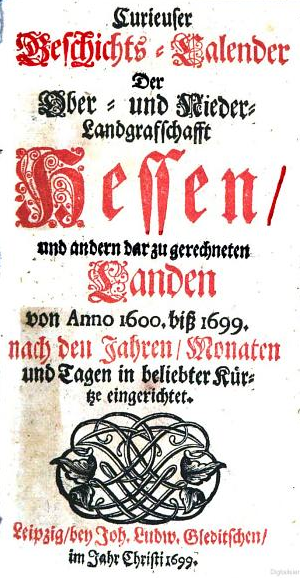 Curieuser
Geschichts-Calender
Der
Ober- und Nieder-
Landgrafschafft
Hessen/
und andern dar zu gerechneten
Landen
von Anno 1600. biß 1699.
nach den Jahren/Monaten
und Tagen in beliebter Kür-
tze eingerichtet.
Leipzig/bey Joh. Ludw. Gleditschen/
im Jahr Christi 1699.